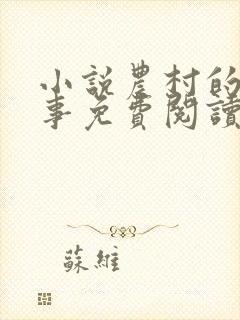 小説農村的
事免費閱讀
蘇維